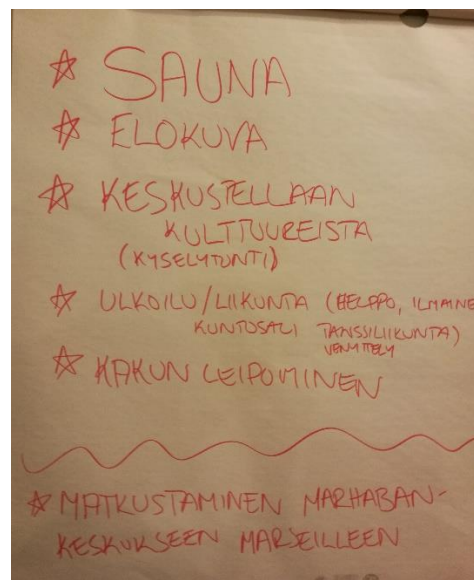 ☆ SAUNA
☆ ELOKUVA
☆ KESKUSTELLAAN
KULTTUUREISTA
(KYSELYTUNTI)
☆ ULKOILU/LIIKUNTA (HELPPO, ILMAINE
KUNTOSALI TANSSILIIKUNTA)
VENYTTELY
☆ KAKUN LEIPOMINEN
☆ MATKUSTAMINEN MARHABAN-
KESKUKSEEN MARSEILLEEN